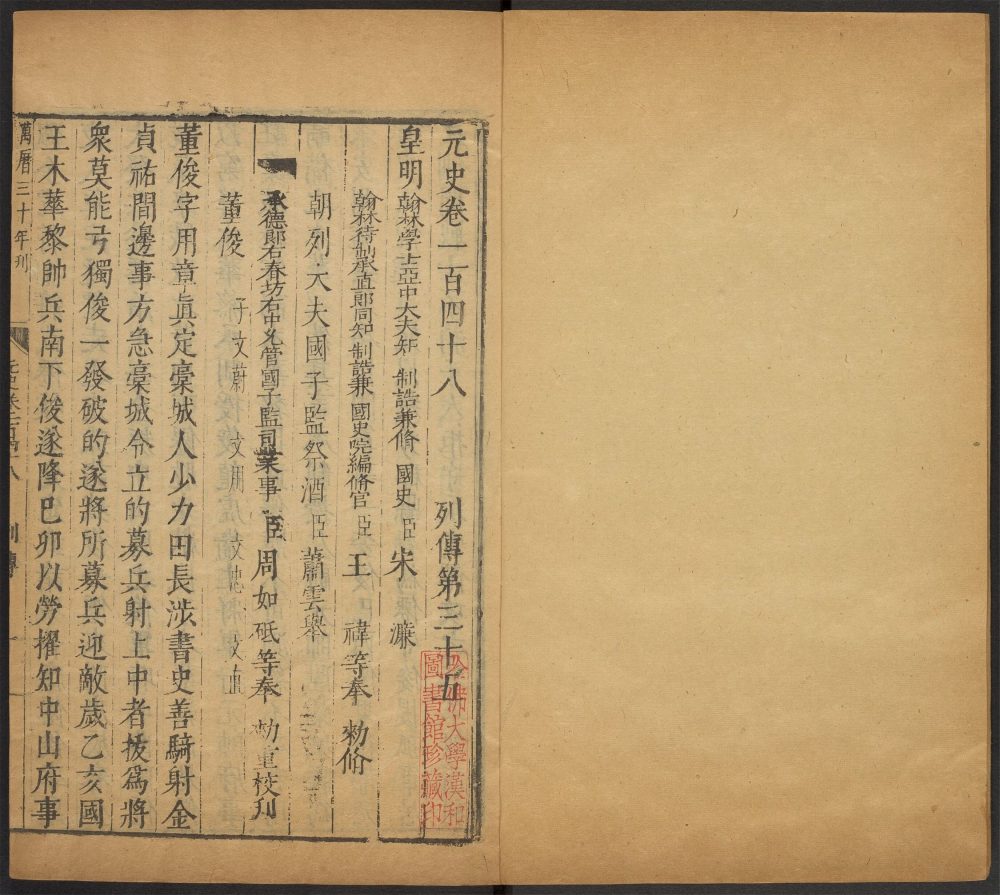 元史卷一百四十八 列傳第三十五
皇明翰林學士亞中大夫知 制誥兼脩 國史臣宋 濂
翰林待制承直郎同知 制誥兼 國史院編脩官臣王 禕等奉 勑脩
朝列大夫國子監祭酒臣蕭雲舉
承德郎右春坊右中允管國子監司業事臣周如砥等奉 勑重校刋
董俊 子文蔚 文用 文直
董俊字用章真定藁城人少力田長涉書史善騎射金
貞祐間邊事方急藁城令立的募兵射上中者拔爲將
衆莫能弓獨俊一發破的遂將所募兵迎敵歲乙亥國
王木華黎帥兵南下俊遂降己卯以勞擢知中山府事
萬曆三十年刋
元史卷一百四八 列傳 一
哈佛大學漢和
圖書館珍藏印